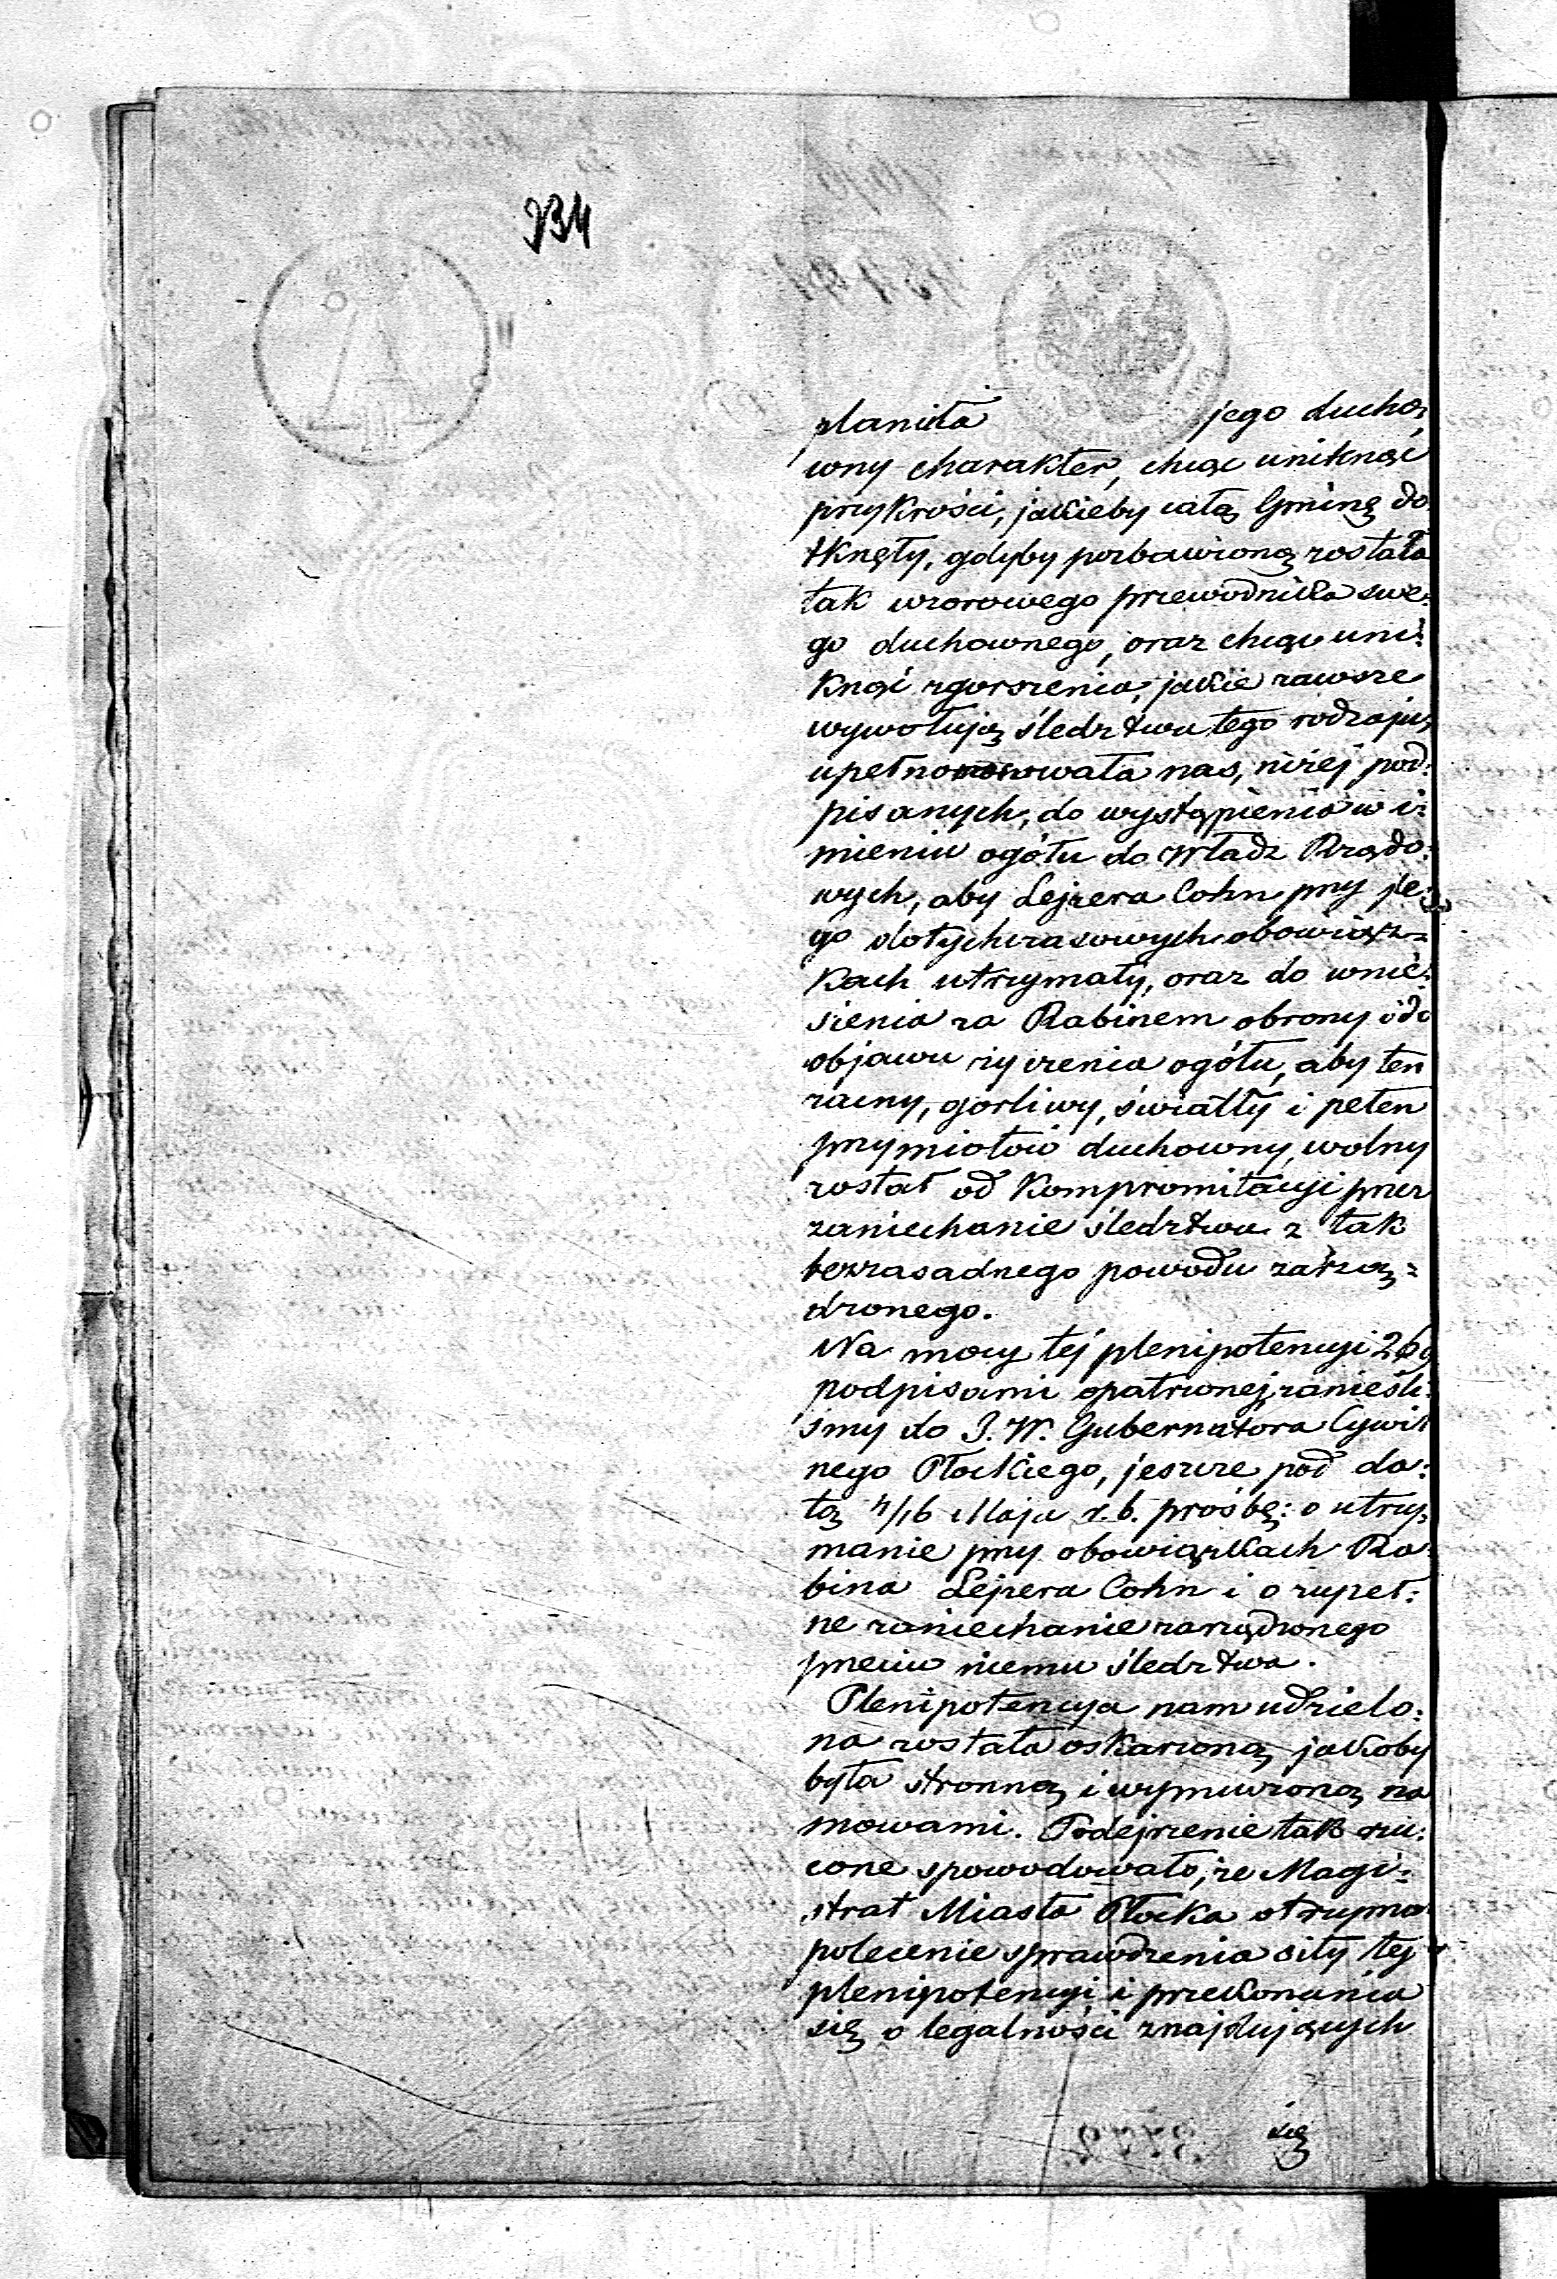 934
plamiła jego ducho,
wny charakter, chcąc uniknąć
przykrości, jakieby całą Gminę do
tknęły, gdyby pozbawioną została
tak wzorowego przewodnika swe:
go duchownego, oraz chcąc uni:
knąć zgorszenia, jakie zawsze
wywołują śledztwa tego rodzaju,
upełnomocniowała nas, niżej pod:
pisanych, do wystąpienia w i:
mieniu ogółu do Władz Rządo:
wych, aby Lejzera Cohn przy je:
go dotychczasowych obowiąz=
kach utrzymały, oraz do wnie:
sienia za Rabinem obrony i do
objawu życzenia ogółu, aby ten
zacny, gorliwy, światły i pełen
przymiotów duchowny, wolny
został od kompromitacyi przez
zaniechanie śledztwa z tak
bezzasadnego powodu zarzą=
dzonego.
Na mocy tej plenipotencyi 269
podpisami opatrzonej, zanieśli:
śmy do J. W. Gubernatora Cywil
nego Płockiego, jeszcze pod da:
tą 4/16 Maja r. b. prośbę: o utrzy,
manie przy obowiązkach Ra:
bina Lejzera Cohn i o zupeł:
ne zaniechanie zarządzonego
przeciw niemu śledztwa.
Plenipotencya nam udzielo:
na została oskarżoną, jakoby
była stronną i wymuszoną na
mowami. Podejrzenie tak rzu:
cone spowodowało, że Magi:
strat Miasta Płocka otrzymał
polecenie sprawdzenia siły tej
plenipotencyi i przekonania
się o legalności znajdujących
się